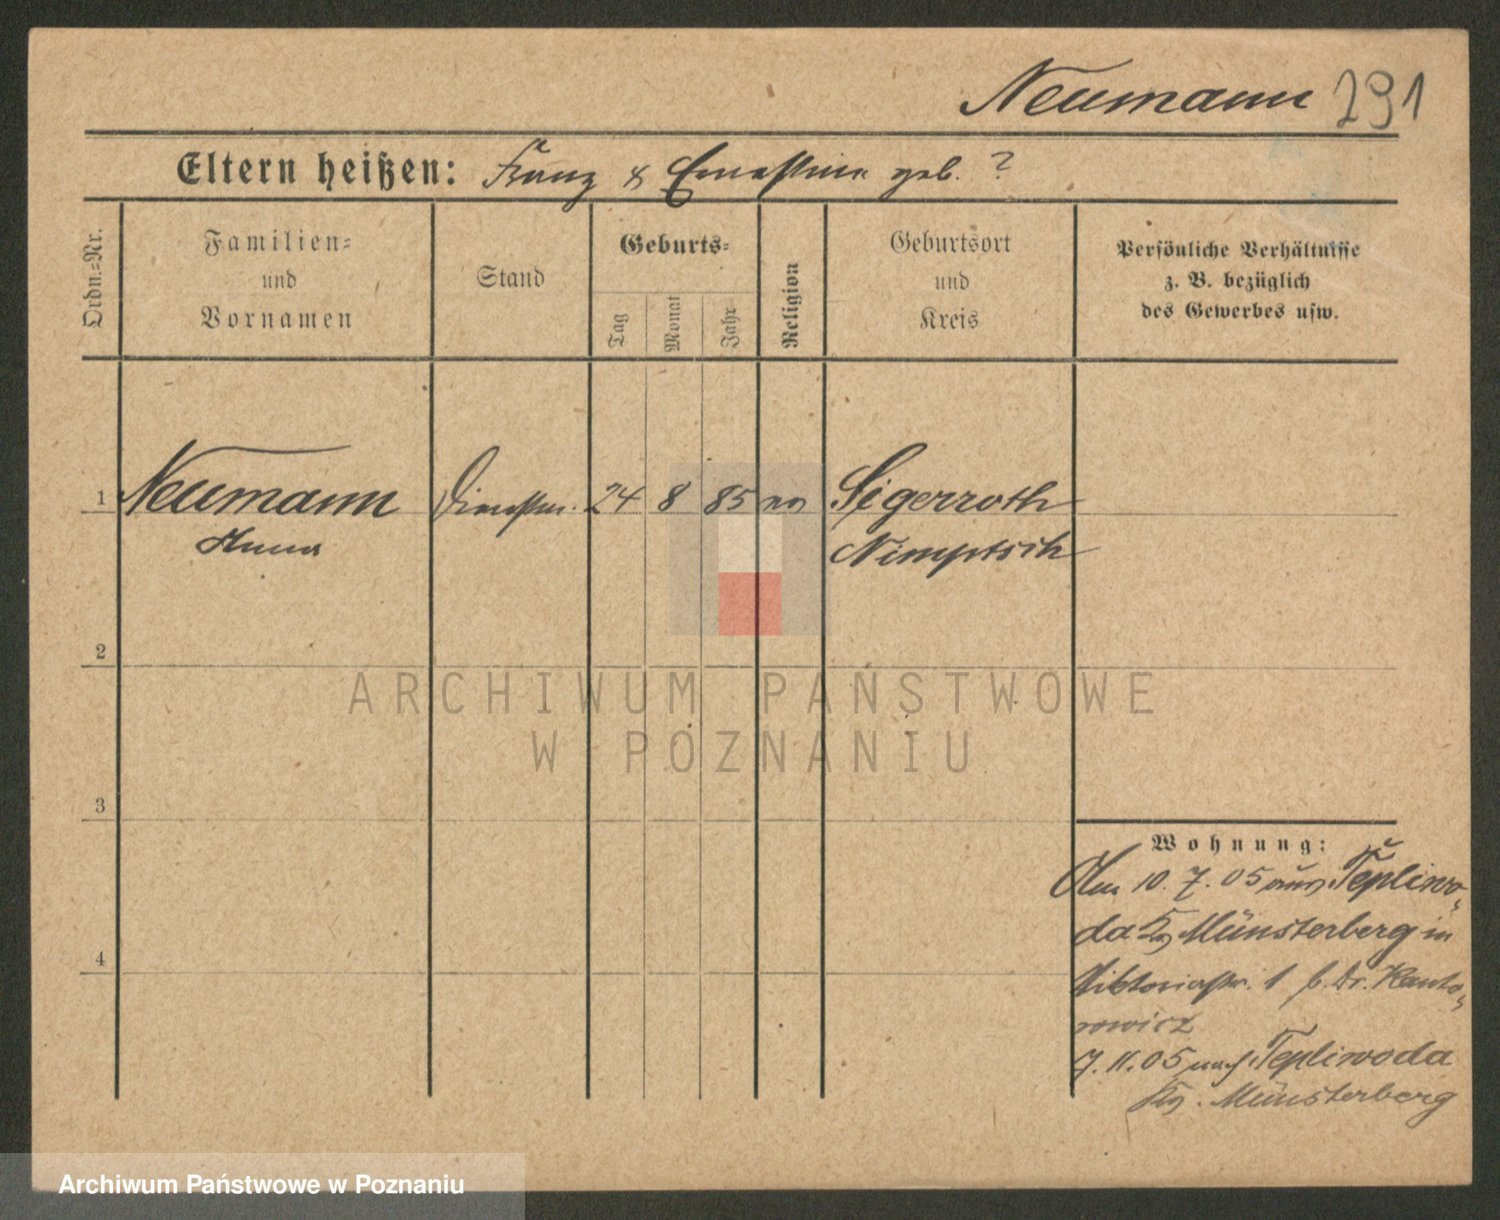 Neumann 291
Eltern heißen: Franz & Ernestine geb. ?
Ordn.-Nr.
Familien-
und
Vornamen
Stand
Geburts-
Tag
Monat
Jahr
Religion
Geburtsort
und
Kreis
Persönliche Verhältnisse
z. B. bezüglich
des Gewerbes usw.
1 Neumann Dienstm. 24 8 85 Sigerroth
Anna Nimptsch
2
ARCHIWUM PAŃSTWOWE
W POZNANIU
3
Wohnung:
Am 10. 7. 05 aus Tepliwo-
da Kr. Münsterberg in
4
Viktoriastr. 1 b. Dr. Kanto-
rowicz
7. 11. 05 nach Tepliwoda
Kr. Münsterberg
Archiwum Państwowe w Poznaniu